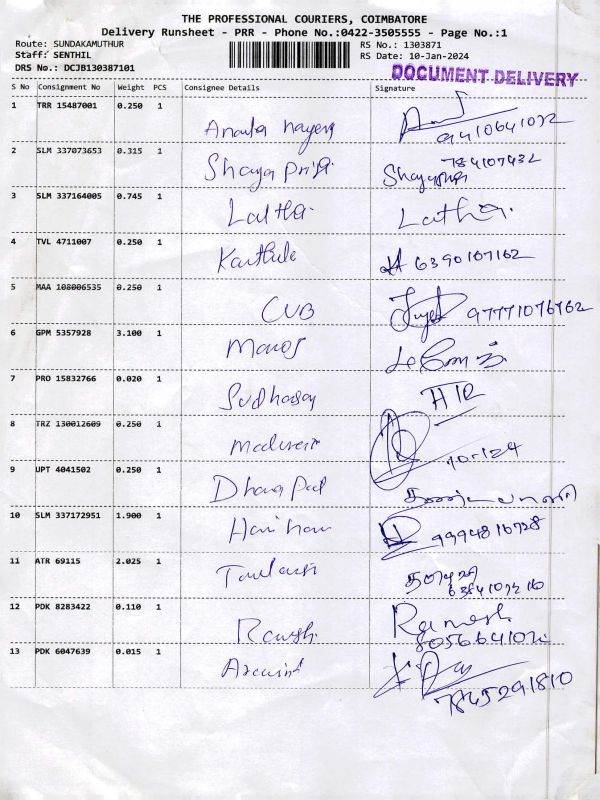 THE PROFESSIONAL COURIERS, COIMBATORE
Delivery Runsheet - PRR - Phone No.:0422-3505555 - Page No.:1
Route: SUNDAKAMUTHUR RS No.: 1303871
Staff: SENTHIL RS Date: 10-Jan-2024
DRS No.: DCJB130387101 DOCUMENT DELIVERY
S No Consignment No Weight PCS Consignee Details Signature
1 TRR 15487001 0.250 1
9410641072
2 SLM 337073653 0.315 1 Shaya Priya
784107432
3 SLM 337164005 0.745 1 Laltha Latha
4 TVL 4711007 0.250 1 6390107162
5 MAA 108006535 0.250 1 CUB 97771076762
6 GPM 5357928 3.100 1 Manoj
7 PRO 15832766 0.020 1
8 TRZ 130012609 0.250 1
10/1/24
9 UPT 4041502 0.250 1
10 SLM 337172951 1.900 1 9994816728
11 ATR 69115 2.025 1
12 PDK 8283422 0.110 1 Ramesh
13 PDK 6047639 0.015 1
7845291810